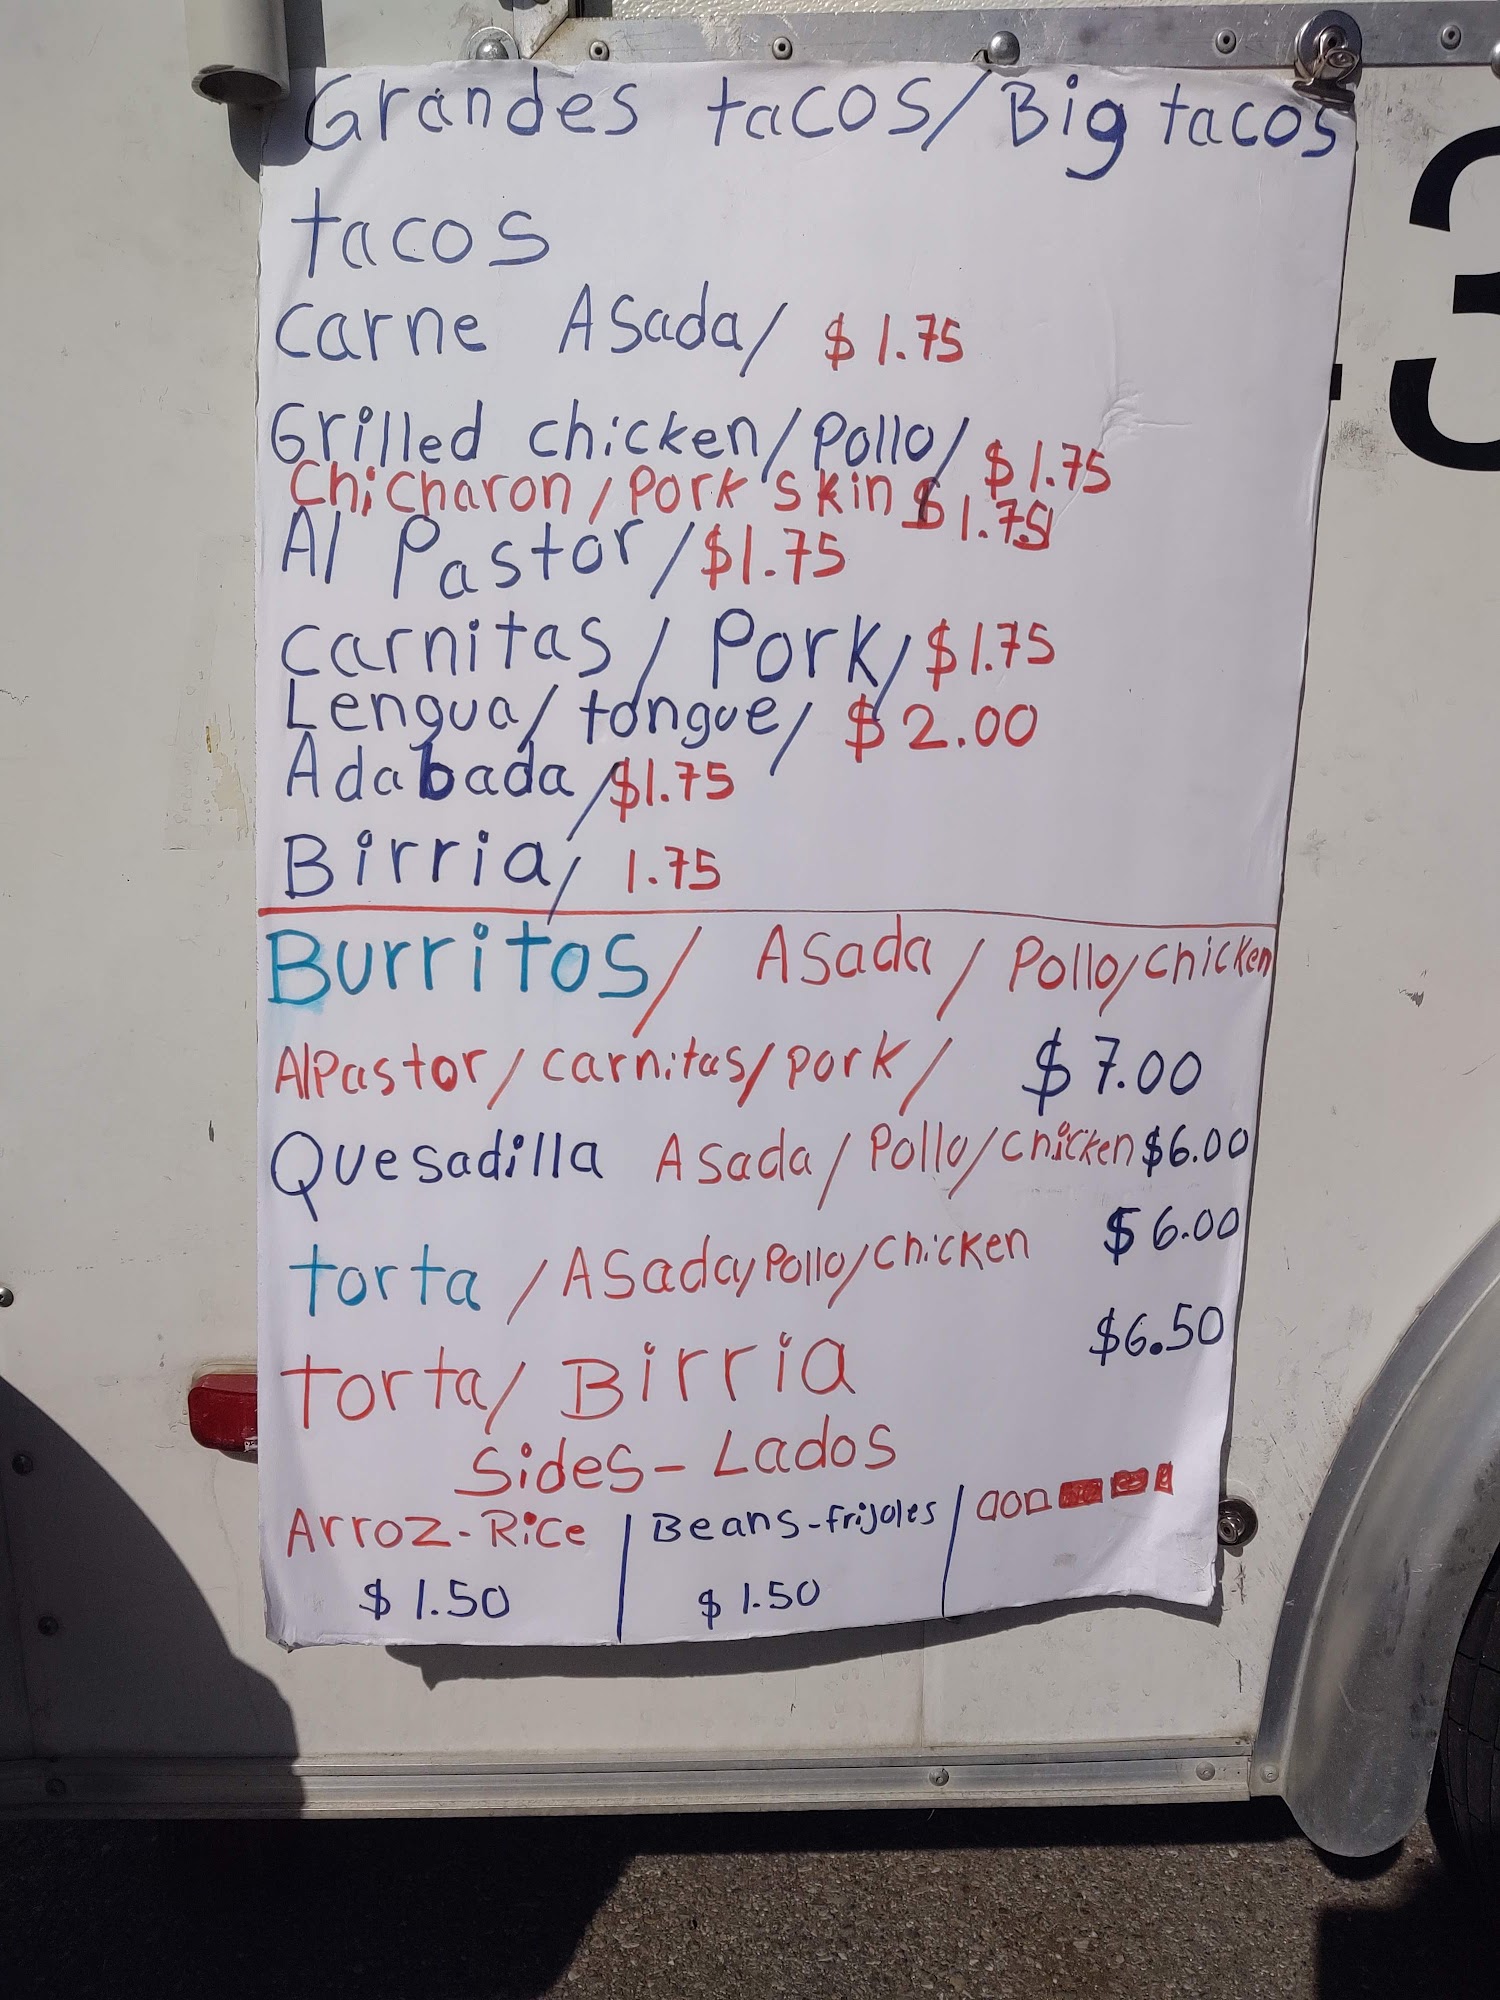 Grandes tacos/Big tacos
tacos
Carne Asada/ $1.75
Grilled chicken/Pollo/ $1.75
Chicharon/Pork skin $1.75
Al Pastor/$1.75
Carnitas/Pork/$1.75
Lengua/tongue/ $2.00
Adabada/$1.75
Birria/ 1.75
Burritos/ Asada/Pollo/chicken
AlPastor/carnitas/pork/ $7.00
Quesadilla Asada/Pollo/chicken $6.00
torta/Asada/Pollo/chicken $6.00
Torta/Birria $6.50
Sides-Lados
Arroz-Rice | Beans-frijoles |
$1.50 $1.50
3